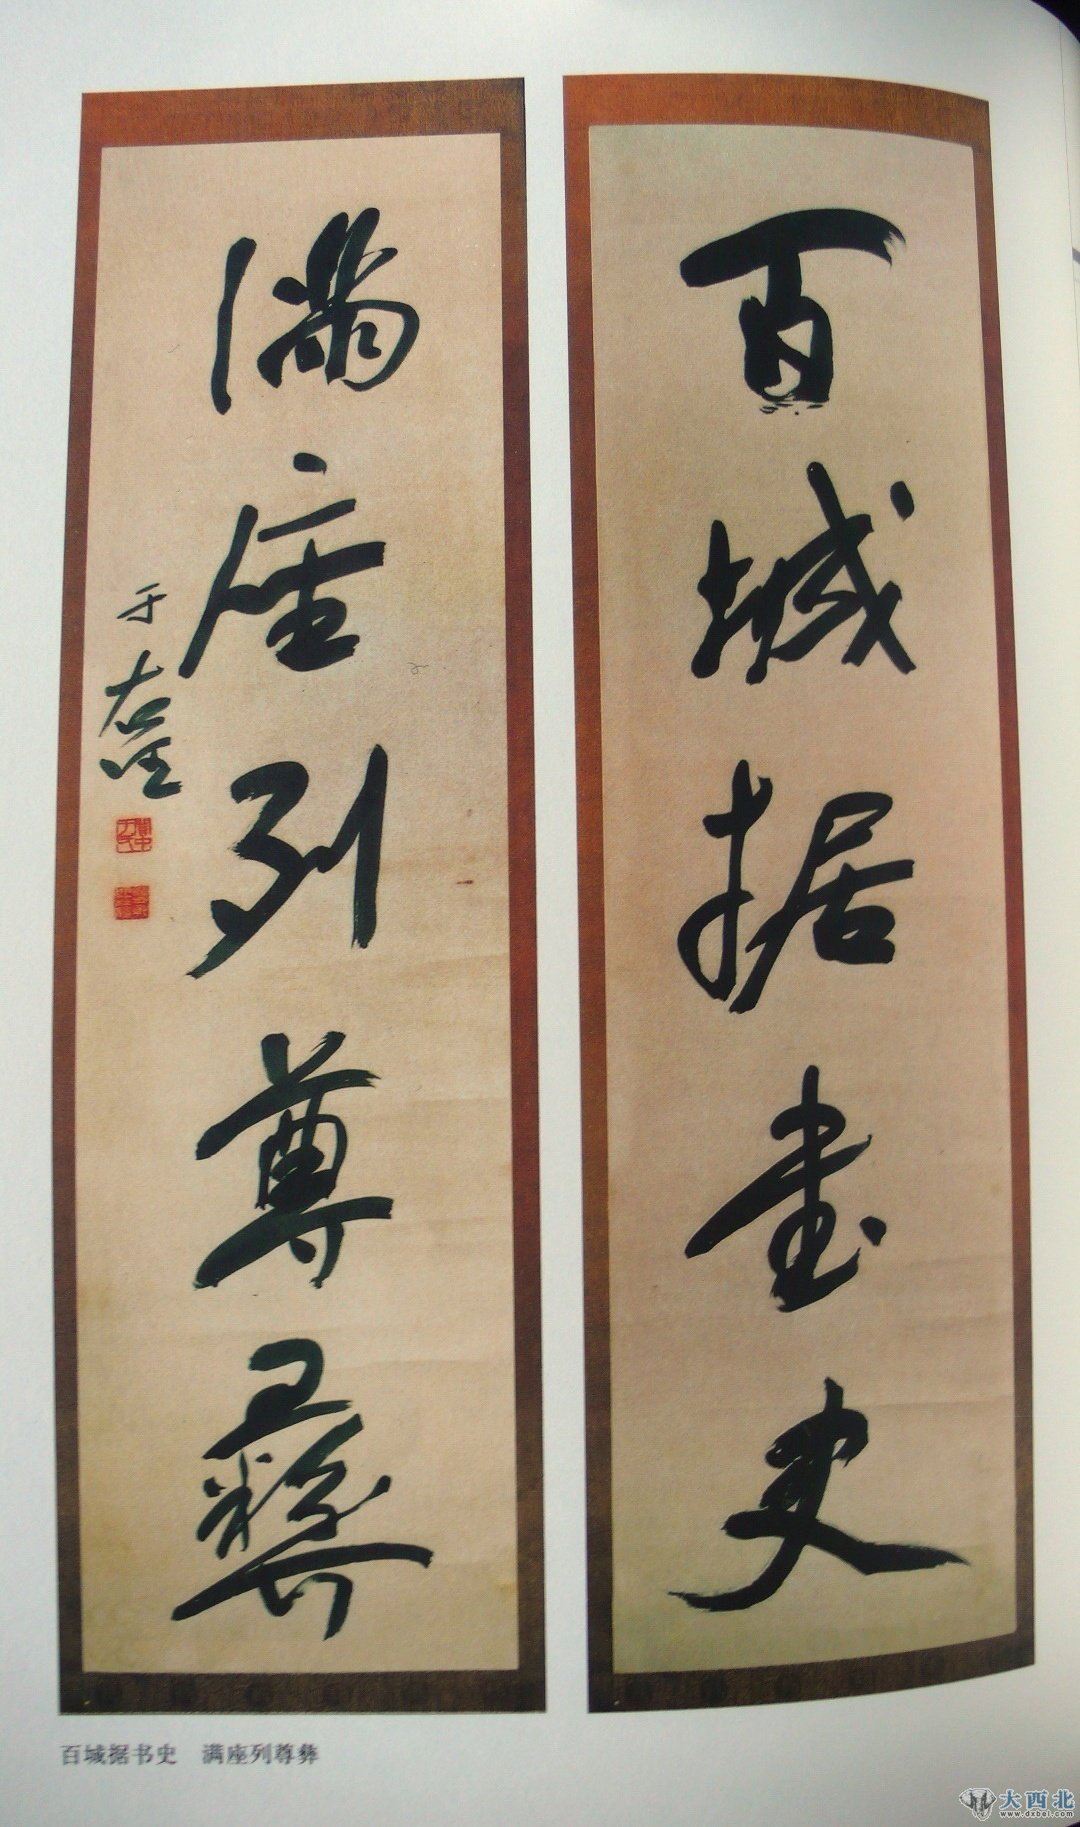 百城据書史
满座列尊彝
于右任
关中于氏
百城据书史　满座列尊彝
大西北
www.dxbei.com